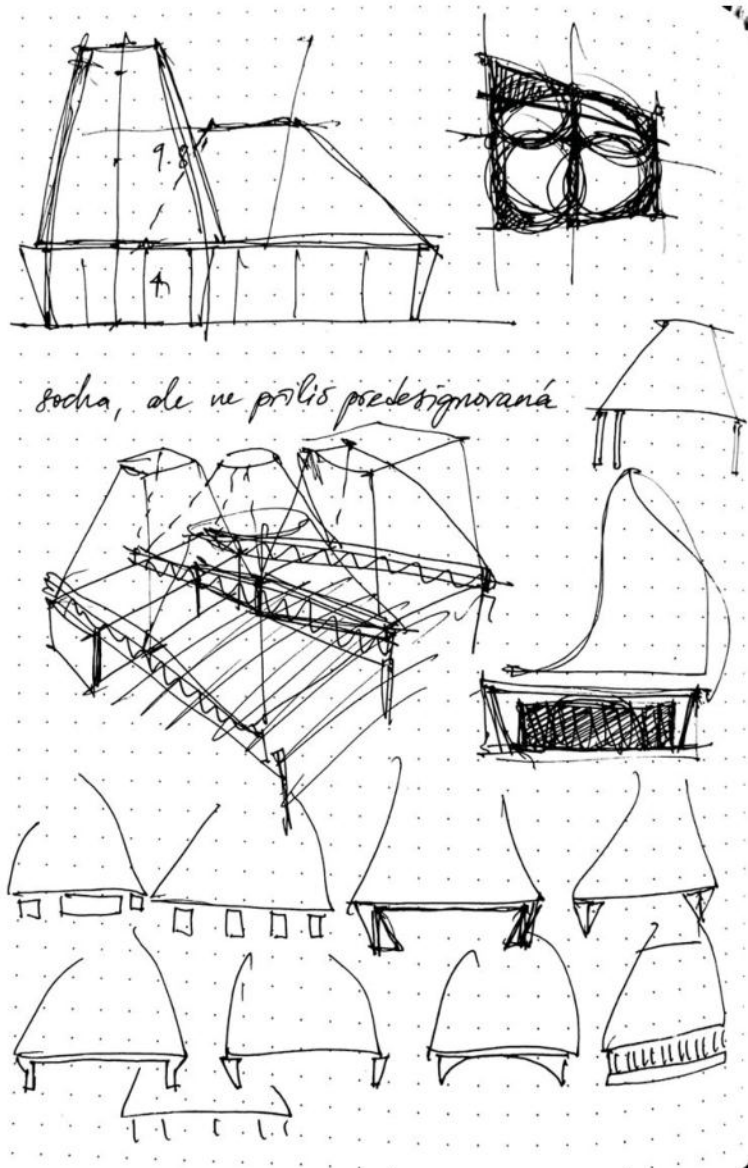 9.8
4
socha, ale ne príliš predesignovaná